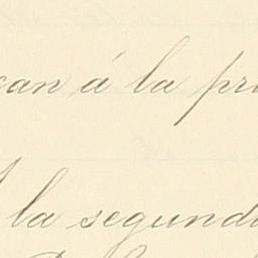 can á la pri
A la segund